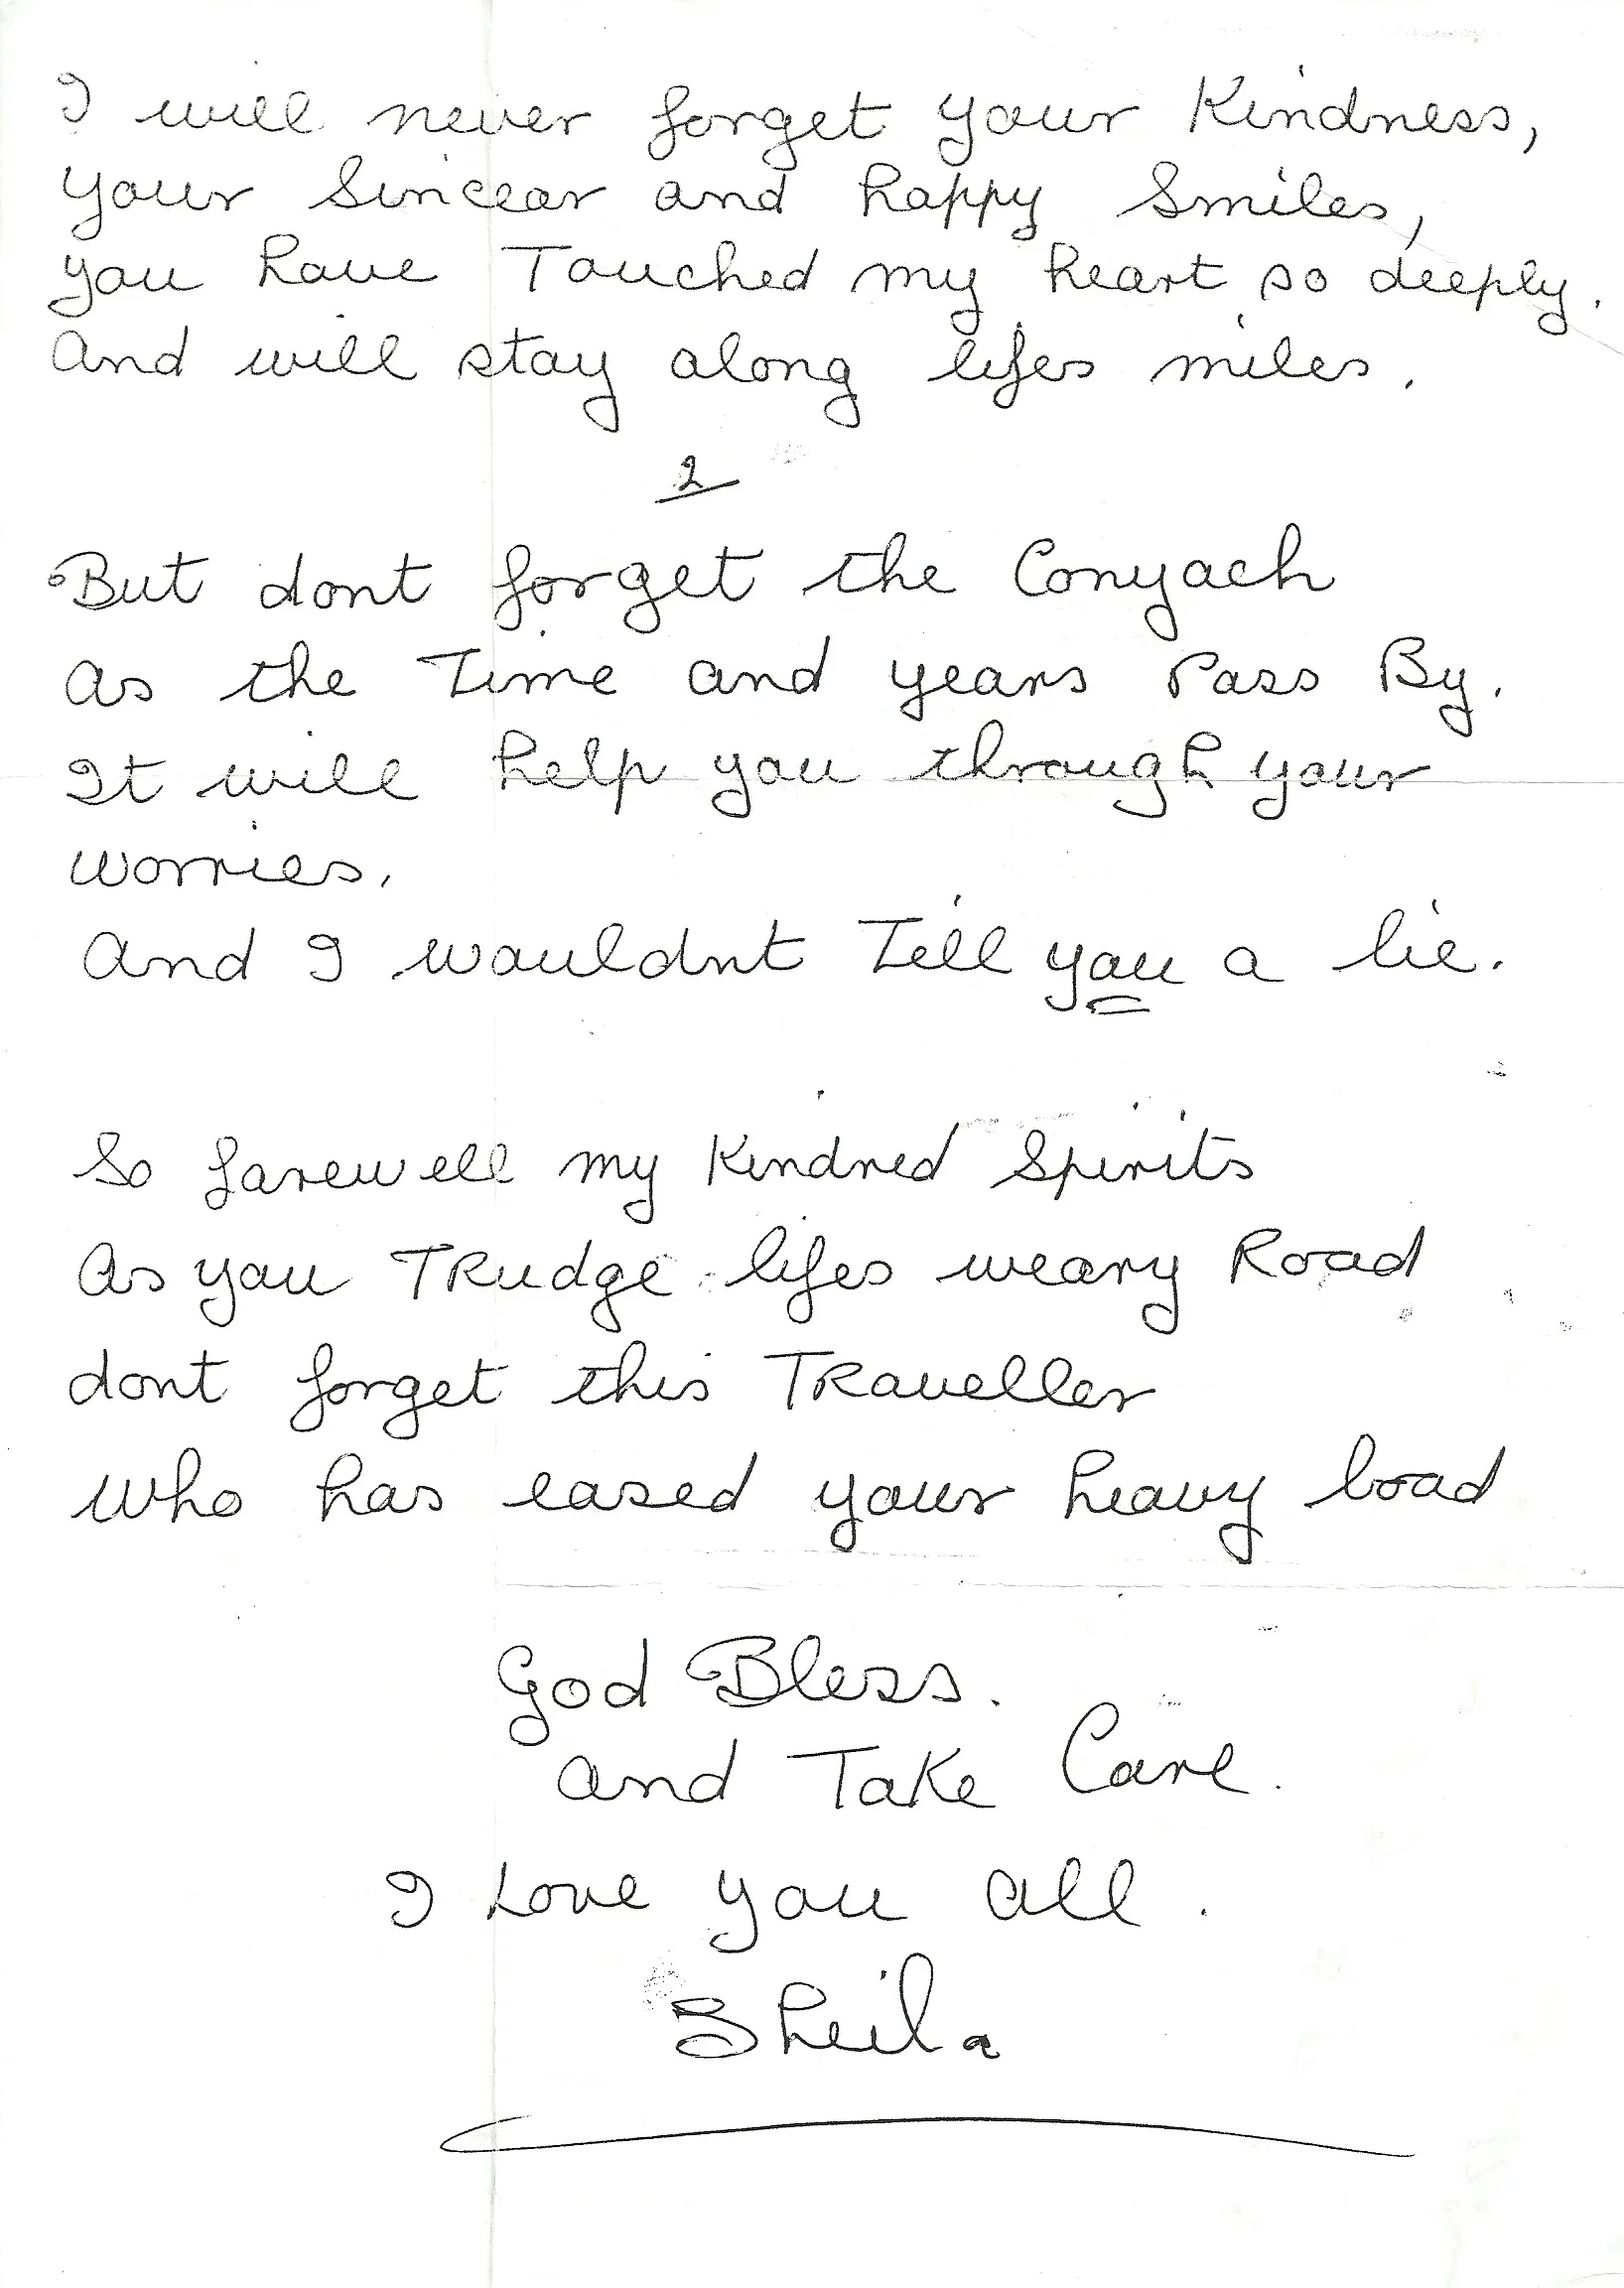 I will never forget your Kindness,
your Sincear and happy Smiles,
you have Touched my heart so deeply.
And will stay along lifes miles.
2
But dont forget the Conyach
as the Time and years Pass By.
It will help you through your
worries.
And I wouldnt Tell you a lie.
So farewell my Kindred Spirits
As you TRudge lifes weary Road
dont forget this TRaveller
Who has eased your heavy load
God Bless.
and Take Care.
I Love you all.
Sheila